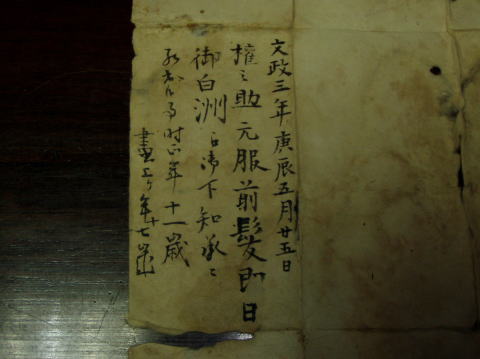 文政三年庚辰五月廿五日
権之助元服前髪即日
御白洲ニ而御下知承ル
時正年十一歳
書上ケ年十七歳